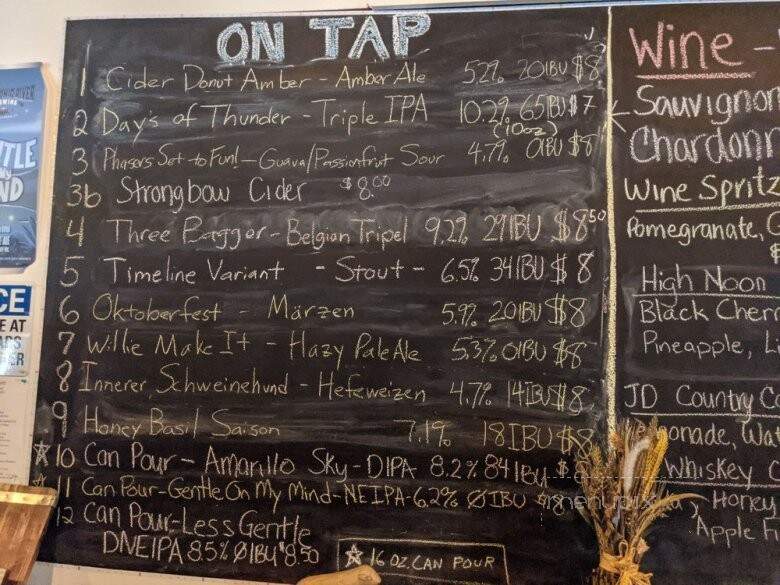 ON TAP
1 Cider Donut Amber - Amber Ale 5.2% 20IBU $8
2 Days of Thunder - Triple IPA 10.2% 65IBU $7
(10oz)
3 Phasors Set to Fun! - Guava/Passionfruit Sour 4.7% 0IBU $8
3b Strongbow Cider $8.00
4 Three Bagger - Belgian Tripel 9.2% 29IBU $8.50
5 Timeline Variant - Stout - 6.5% 34IBU $8
6 Oktoberfest - Märzen 5.9% 20IBU $8
7 Willie Make It - Hazy Pale Ale 5.3% 0IBU $8
8 Innerer Schweinehund - Hefeweizen 4.7% 14IBU $8
9 Honey Basil Saison 7.1% 18IBU $8
☆10 Can Pour - Amarillo Sky - DIPA 8.2% 84IBU $8
☆11 Can Pour - Gentle On My Mind - NEIPA - 6.2% ØIBU $8
12 Can Pour - Less Gentle
DNEIPA 8.5% ØIBU $8.50
☆ 16 OZ. CAN POUR
Wine -
Sauvignon
Chardonn
Wine Spritz
Pomegranate, C
$
High Noon
Black Cherr
Pineapple, Li
JD Country Co
onade, Wat
Whiskey
y Honey
Apple Fi
menupix
TLE
ND
CE
E AT